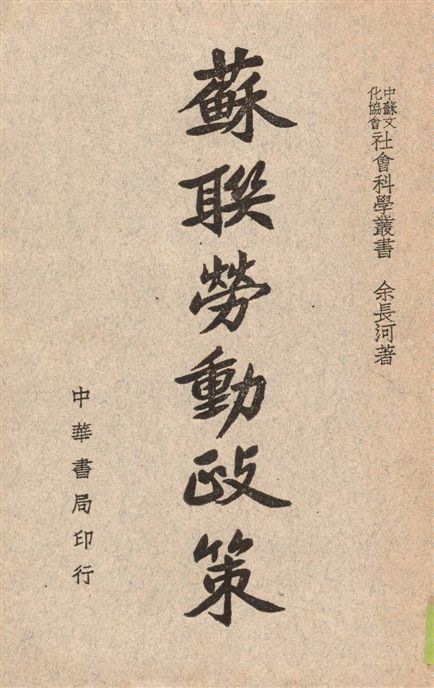 中蘇文化協會社會科學叢書　余長河著
蘇聯勞動政策
中華書局印行